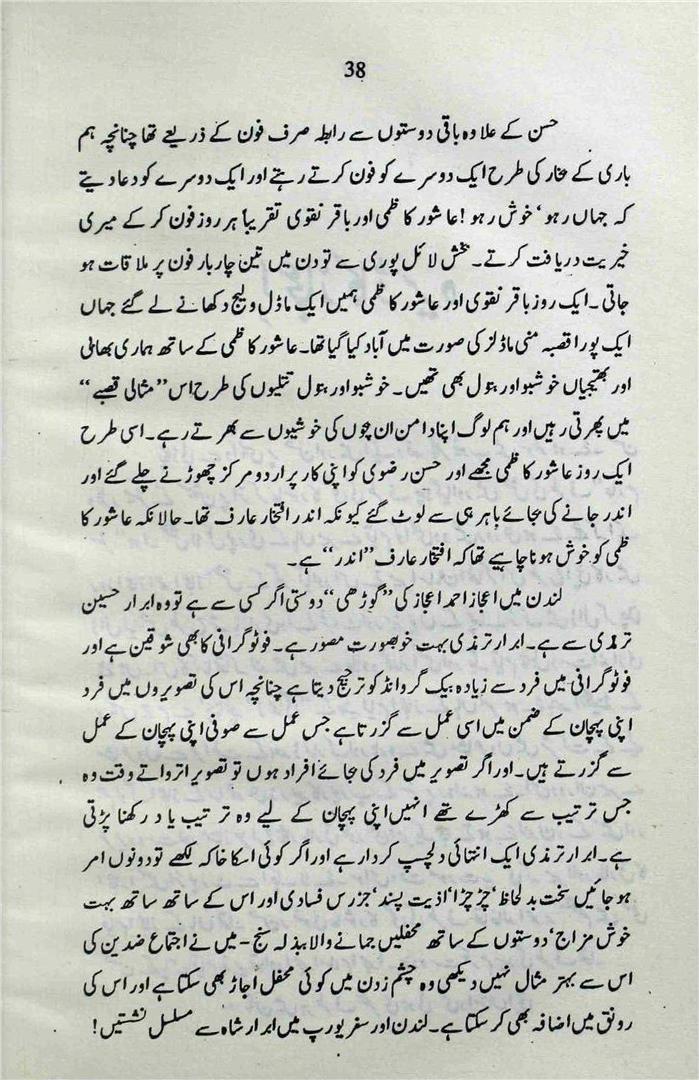 38
حسن کے علاوہ باقی دوستوں سے رابطہ صرف فون کے ذریعے تھا چنانچہ ہم
باری کے بخار کی طرح ایک دوسرے کو فون کرتے رہتے اور ایک دوسرے کو دعا دیتے
کہ جہاں رہو ' خوش رہو ! عاشور کاظمی اور باقر نقوی تقریباً ہر روز فون کر کے میری
خیریت دریافت کرتے۔ بخش لائل پوری سے تو دن میں تین چار بار فون پر ملاقات ہو
جاتی۔ ایک روز باقر نقوی اور عاشور کاظمی ہمیں ایک ماڈل ولیج دکھانے لے گئے جہاں
ایک پورا قصبہ منی ماڈلز کی صورت میں آباد کیا گیا تھا۔ عاشور کاظمی کے ساتھ ہماری بھابی
اور بھتیجیاں خوشبو اور بتول بھی تھیں۔ خوشبو اور بتول تتلیوں کی طرح اس ’’مثالی قصبے‘‘
میں پھرتی رہیں اور ہم لوگ اپنا دامن ان بچوں کی خوشیوں سے بھرتے رہے۔ اسی طرح
ایک روز عاشور کاظمی مجھے اور حسن رضوی کو اپنی کار پر اردو مرکز چھوڑنے چلے گئے اور
اندر جانے کی بجائے باہر ہی سے لوٹ گئے کیونکہ اندر افتخار عارف تھا۔ حالانکہ عاشور کا
ظمی کو خوش ہونا چاہیے تھا کہ افتخار عارف ’’اندر‘‘ ہے۔
لندن میں اعجاز احمد اعجاز کی ’’گوڑھی‘‘ دوستی اگر کسی سے ہے تو وہ ابرار حسین
ترمذی سے ہے۔ ابرار ترمذی بہت خوبصورت مصور ہے۔ فوٹوگرافی کا بھی شوقین ہے اور
فوٹوگرافی میں فرد سے زیادہ بیک گرواند کو ترجیح دیتا ہے چنانچہ اس کی تصویروں میں فرد
اپنی پہچان کے ضمن میں اسی عمل سے گزرتا ہے جس عمل سے صوفی اپنی پہچان کے عمل
سے گزرتے ہیں۔ اور اگر تصویر میں فرد کی بجائے افراد ہوں تو تصویر اترواتے وقت وہ
جس ترتیب سے کھڑے تھے انہیں اپنی پہچان کے لیے وہ ترتیب یاد رکھنا پڑتی
ہے۔ ابرار ترمذی ایک انتہائی دلچسپ کردار ہے اور اگر کوئی اسکا خاکہ لکھے تو دونوں امر
ہو جائیں سخت بد لحاظ ' چڑچڑا ' اذیت پسند ' جزرس فسادی اور اس کے ساتھ ساتھ بہت
خوش مزاج ' دوستوں کے ساتھ محفلیں جمانے والا بذلہ سنج - میں نے اجتماع ضدین کی
اس سے بہتر مثال نہیں دیکھی وہ چشم زدن میں کوئی محفل اجاڑ بھی سکتا ہے اور اس کی
رونق میں اضافہ بھی کر سکتا ہے۔ لندن اور سفر یورپ میں ابرار شاہ سے مسلسل نشستیں !